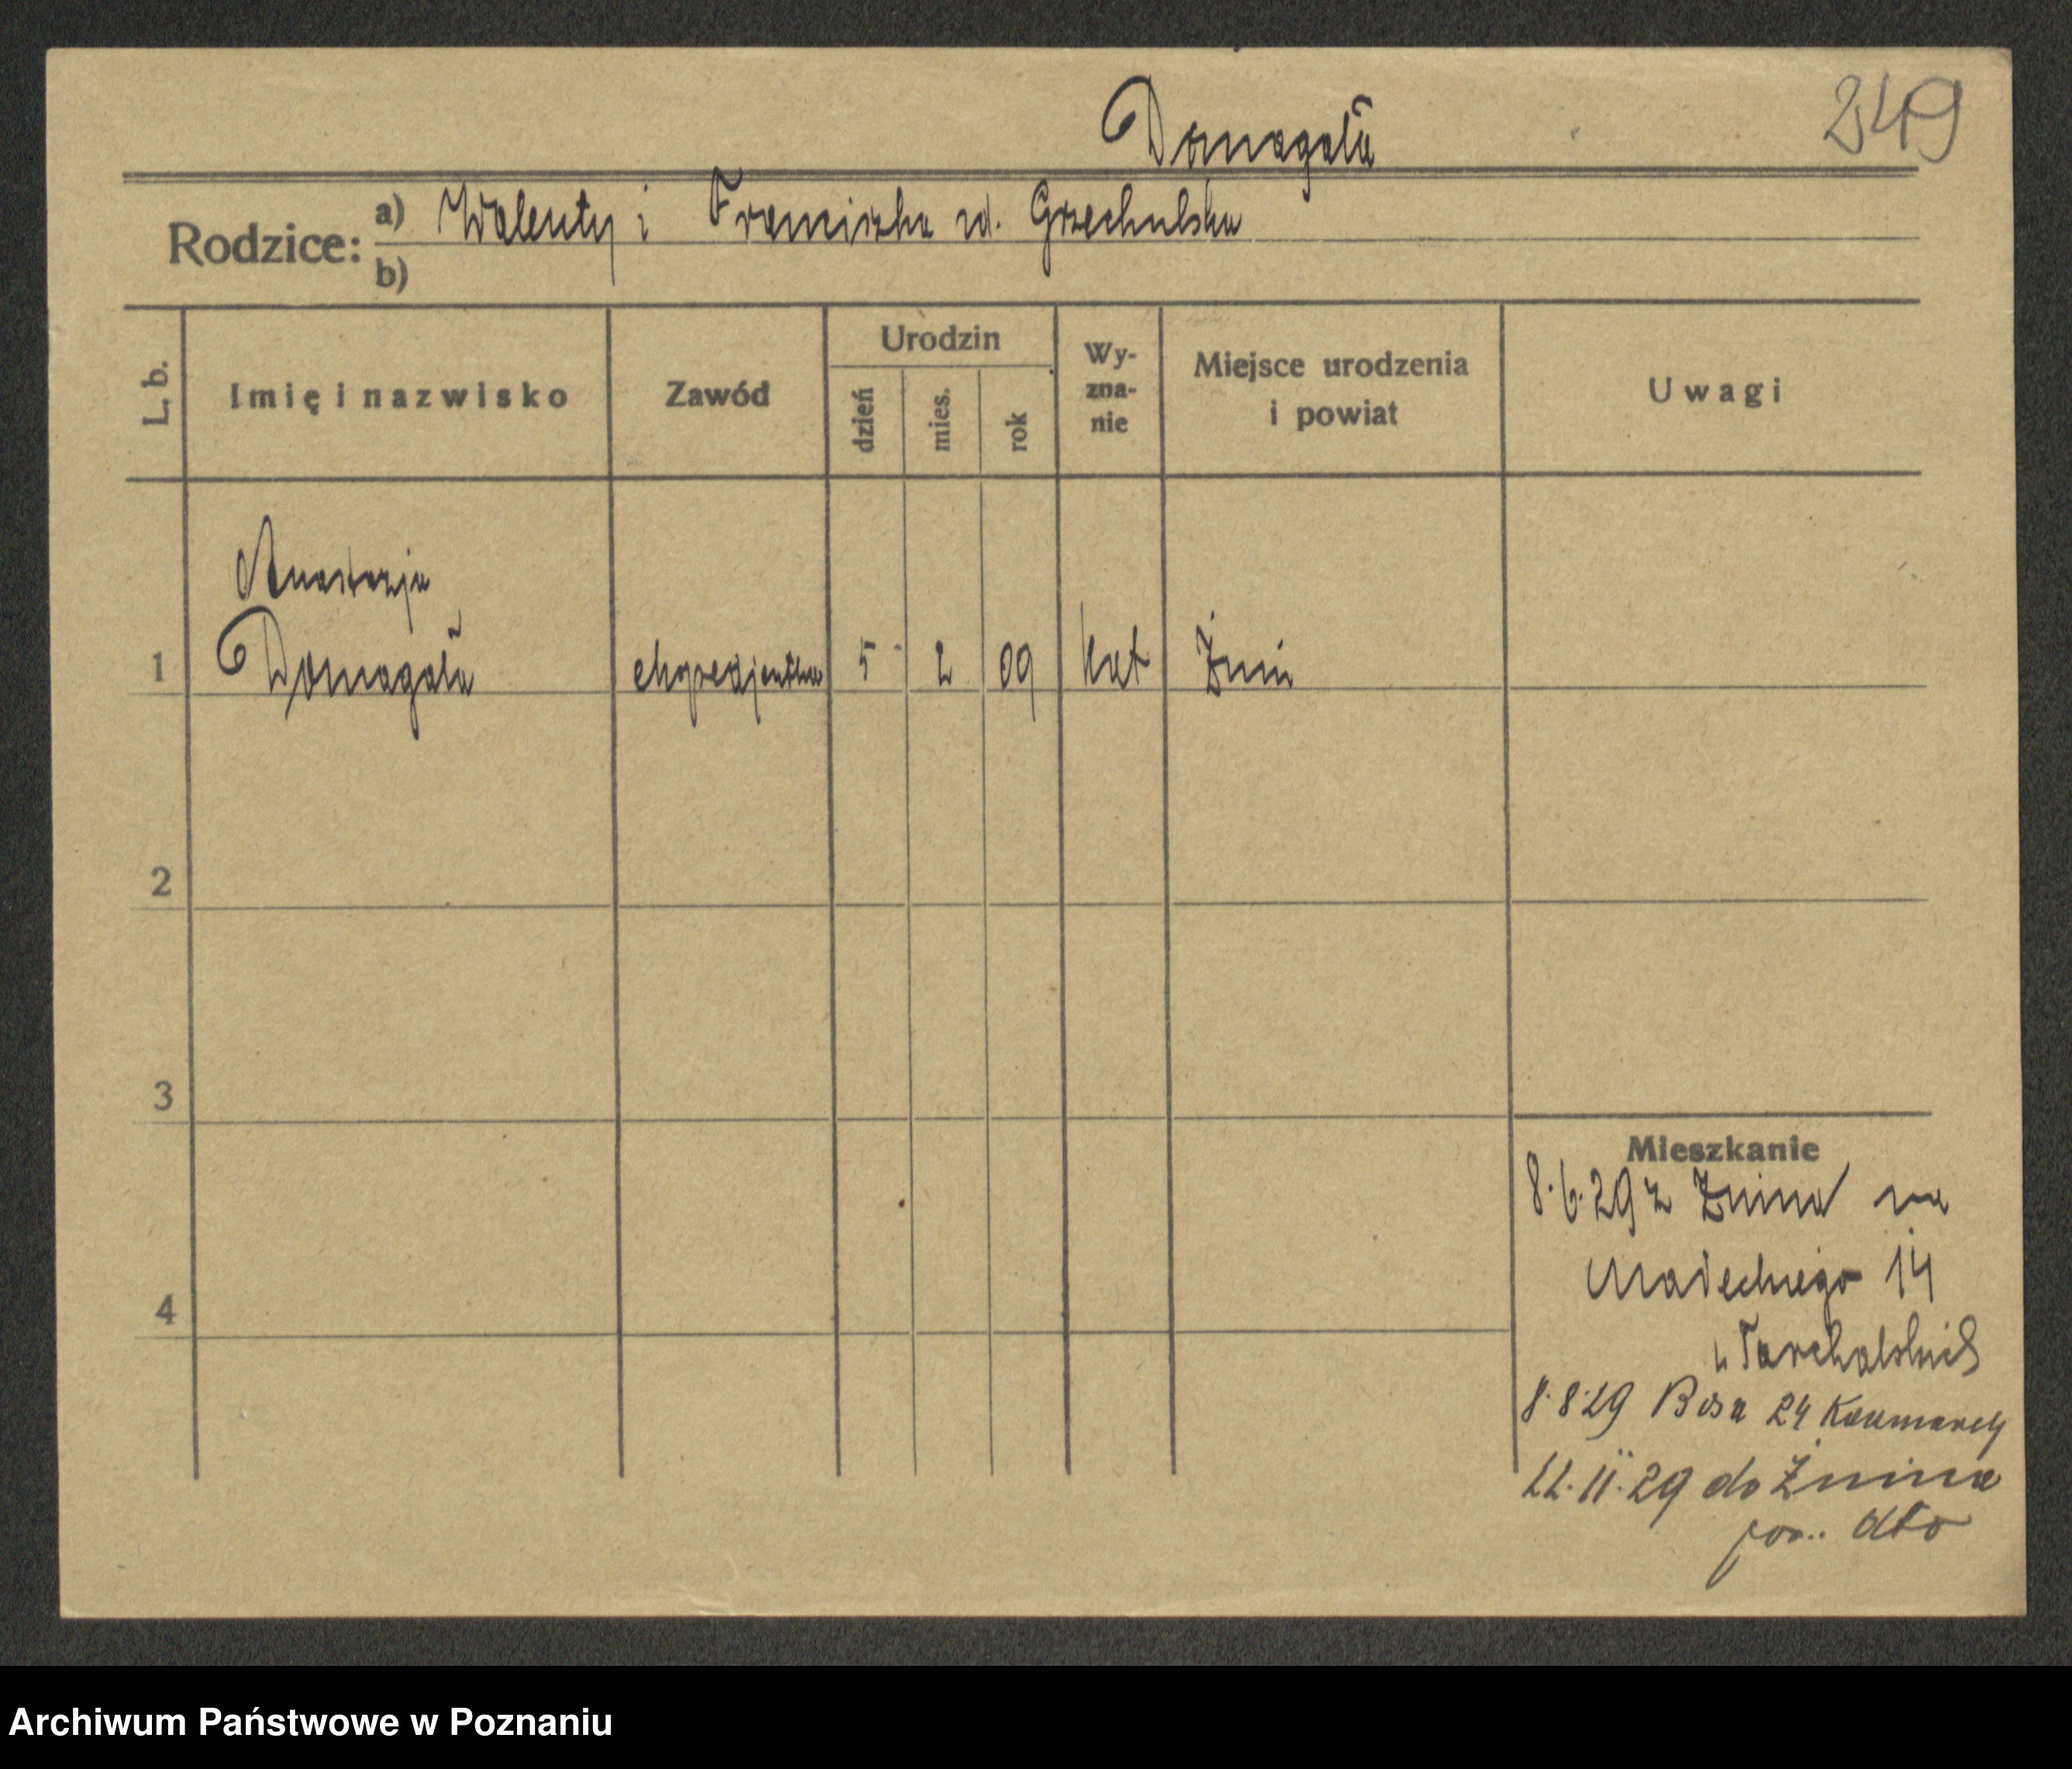 249
Domagała
Rodzice: a) Walenty i Franciszka zd. Grzechulska
b)
L. b. Imię i nazwisko Zawód Urodzin dzień mies. rok Wy-zna-nie Miejsce urodzenia i powiat Uwagi
Anastazja
1 Domagała ekspedjentka 5 2 09 kat Żnin
2
3
4
Mieszkanie
8.6.29 z Żnina na
Madeckiego 14
u Tarchalskich
8.8.29 Bosa 24
22.11.29 do Żnina
pow. dto
Archiwum Państwowe w Poznaniu